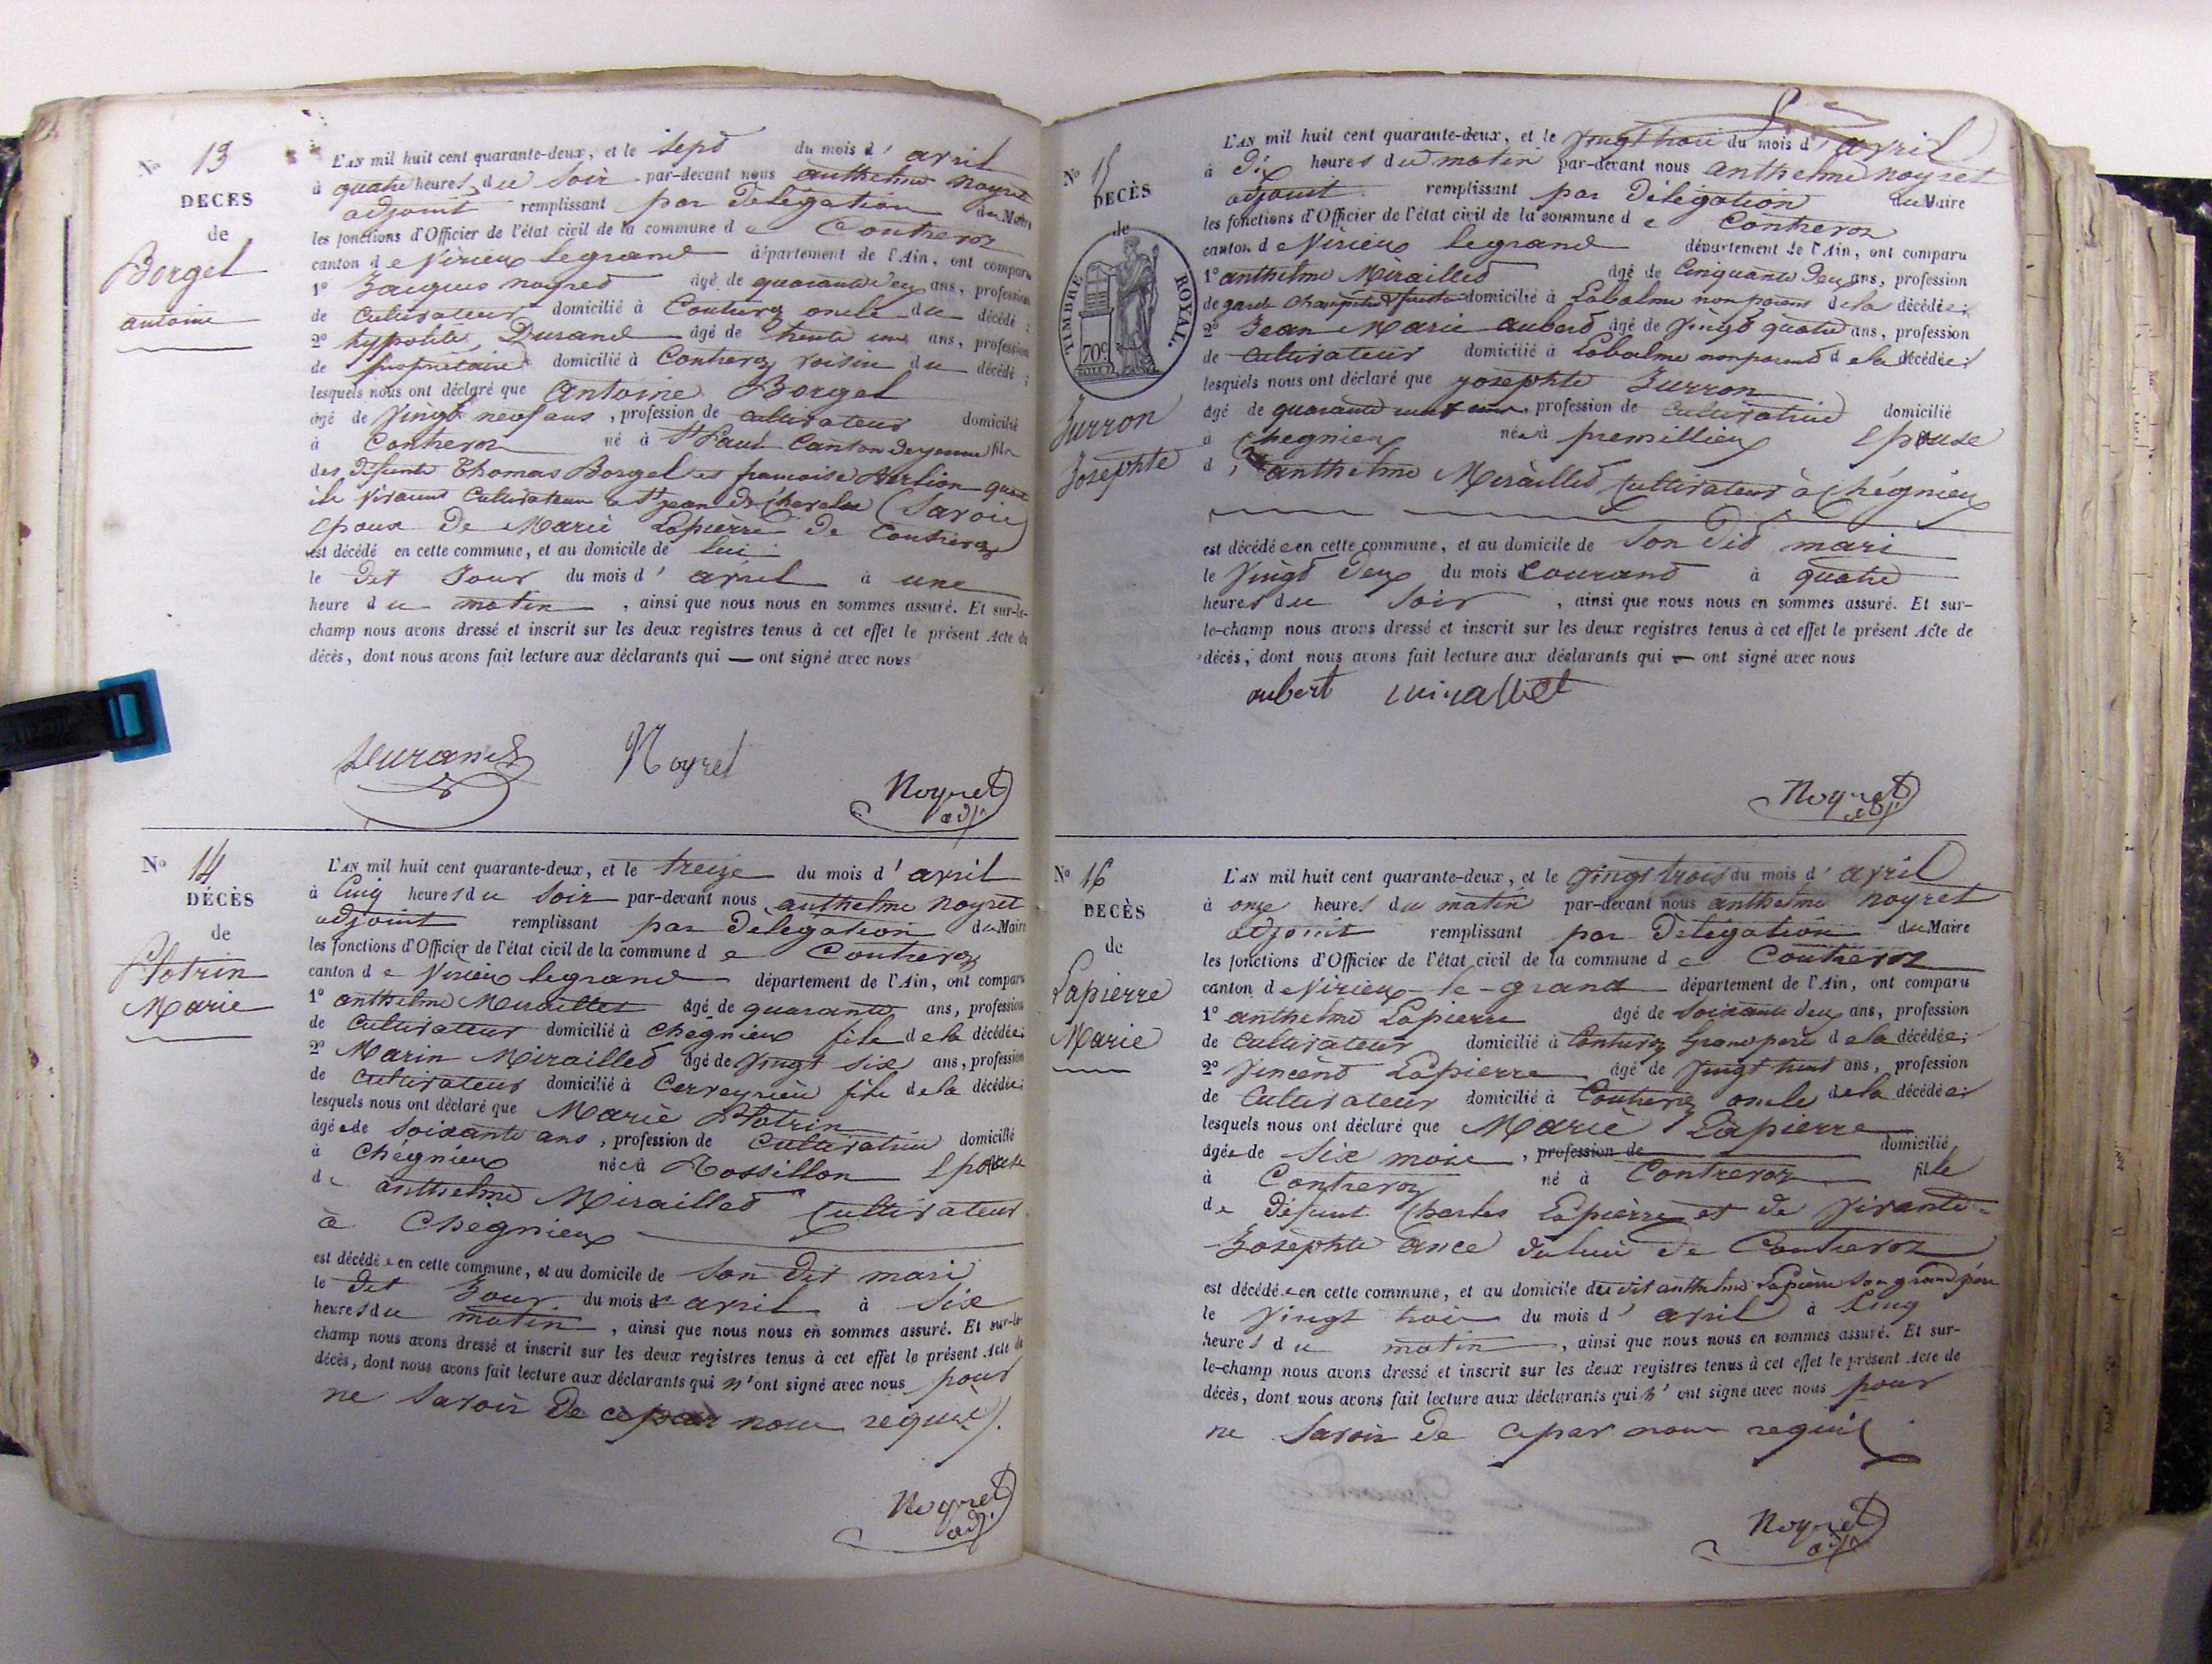 N° 13
DECES
de
Borgel
antoine
L'AN mil huit cent quarante-deux, et le sept du mois d' avril
à quatre heures du soir par-devant nous anthelme noyret
adjoint remplissant par Délégation du Maire
les fonctions d'Officier de l'état civil de la commune de Contrevoz
canton de Virieux legrand département de l'Ain, ont comparu
1° Jacques noyret âgé de quarante deux ans, profession
de Cultivateur domicilié à Contrevoz oncle du décédé ;
2° hyppolite Durand âgé de trente un ans, profession
de propriétaire domicilié à Contrevoz voisin du décédé ;
lesquels nous ont déclaré que Antoine Borgel
âgé de vingt neuf ans, profession de cultivateur domicilié
à Contrevoz né à St Paul Canton de yenne fils
des défunts Thomas Borgel et francoise
ils vivaient Cultivateurs a St jean de Chevelu (Savoie)
Epoux De Marie Lapierre De Contrevoz
est décédé en cette commune, et au domicile de lui
le Dit Jour du mois d' avril à une
heure du matin, ainsi que nous nous en sommes assuré. Et sur-le-
champ nous avons dressé et inscrit sur les deux registres tenus à cet effet le présent Acte de
décès, dont nous avons fait lecture aux déclarants qui — ont signé avec nous
Durand Noyret
Noyret
adj.
N° 14
DÉCÈS
de
Plotrin
Marie
L'AN mil huit cent quarante-deux, et le treize du mois d' avril
à Cinq heures du Soir par-devant nous anthelme noyret
adjoint remplissant par Délégation du Maire
les fonctions d'Officier de l'état civil de la commune de Contrevoz
canton de Virieux legrand département de l'Ain, ont comparu
1° anthelme Miraillet âgé de quarante ans, profession
de Cultivateur domicilié à Chegnieux fils de la décédée ;
2° Marin Miraillet âgé de vingt six ans, profession
de Cultivateur domicilié à Cerveyrieu fils de la décédée ;
lesquels nous ont déclaré que Marie Plotrin
âgée de soixante ans, profession de Cultivatrice domicilié
à Chégnieux née à Rossillon Epouse
de anthelme Miraillet Cultivateur
à Chegnieux
est décédée en cette commune, et au domicile de Son Dit mari
le Dit Jour du mois d' avril à Six
heures du matin, ainsi que nous nous en sommes assuré. Et sur-le-
champ nous avons dressé et inscrit sur les deux registres tenus à cet effet le présent Acte de
décès, dont nous avons fait lecture aux déclarants qui n'ont signé avec nous pour
ne Savoir de ce par nous requis.
Noyret
adj.
N° 15
DÉCÈS
de
TIMBRE ROYAL.
70c.
Jurron
Josephte
L'AN mil huit cent quarante-deux, et le vingt trois du mois d' avril
à Dix heures du matin par-devant nous anthelme noyret
adjoint remplissant par Délégation du Maire
les fonctions d'Officier de l'état civil de la commune de Contrevoz
canton de Virieux legrand département de l'Ain, ont comparu
1° anthelme Miraillet âgé de Cinquante Deux ans, profession
de garde Champetre domicilié à Labalme non parent de la décédée ;
2° Jean Marie aubert âgé de Vingt quatre ans, profession
de Cultivateur domicilié à Labalme non parent de la décédée ;
lesquels nous ont déclaré que josephte Jurron
âgé de quarante, profession de Cultivatrice domicilié
à Chegnieux née à premillieux Epouse
d' anthelme Miraillet Cultivateur à Chégnieux
est décédée en cette commune, et au domicile de Son Dit mari
le Vingt Deux du mois Courant à quatre
heures du Soir, ainsi que nous nous en sommes assuré. Et sur-
le-champ nous avons dressé et inscrit sur les deux registres tenus à cet effet le présent Acte de
décès, dont nous avons fait lecture aux déclarants qui — ont signé avec nous
aubert miraillet
Noyret
adj.
N° 16
DECÈS
de
Lapierre
Marie
L'AN mil huit cent quarante-deux, et le vingt trois du mois d' avril
à onze heures du matin par-devant nous anthelme noyret
adjoint remplissant par Délégation du Maire
les fonctions d'Officier de l'état civil de la commune de Contrevoz
canton de Virieux-le-grand département de l'Ain, ont comparu
1° anthelme Lapierre âgé de Soixante deux ans, profession
de Cultivateur domicilié à Contrevoz Grand pere de la décédée ;
2° Vincent Lapierre âgé de Vingt huit ans, profession
de Cultivateur domicilié à Contrevoz oncle de la décédée ;
lesquels nous ont déclaré que Marie Lapierre
âgée de Six mois, profession de domicilié
à Contrevoz né à Contrevoz fille
de Défunt Charles Lapierre et de vivante
Josephte de Contrevoz
est décédée en cette commune, et au domicile du dit anthelme Lapierre Son grand père
le Vingt trois du mois d' avril à Cinq
heures du matin, ainsi que nous nous en sommes assuré. Et sur-
le-champ nous avons dressé et inscrit sur les deux registres tenus à cet effet le présent Acte de
décès, dont nous avons fait lecture aux déclarants qui n'ont signé avec nous pour
ne Savoir De ce par nous requis
Noyret
adj.